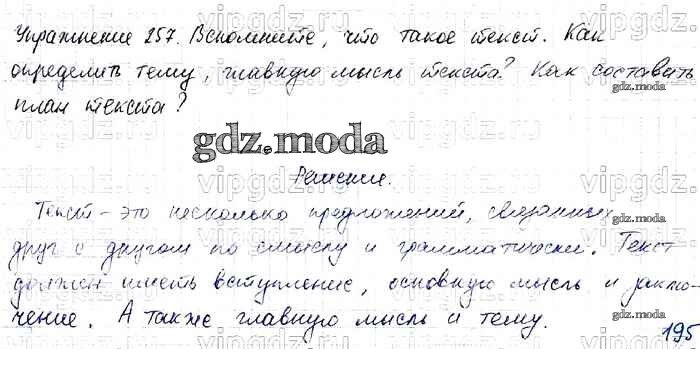 Упражнение 257. Вспомните, что такое текст. Как
определить тему, главную мысль текста? Как составить
план текста?
gdz.moda
Решение.
Текст - это несколько предложений, связанных
gdz.moda
друг с другом по смыслу и грамматически. Текст
должен иметь вступление, основную мысль и заклю-
чение. А также главную мысль и тему.
gdz.moda
195